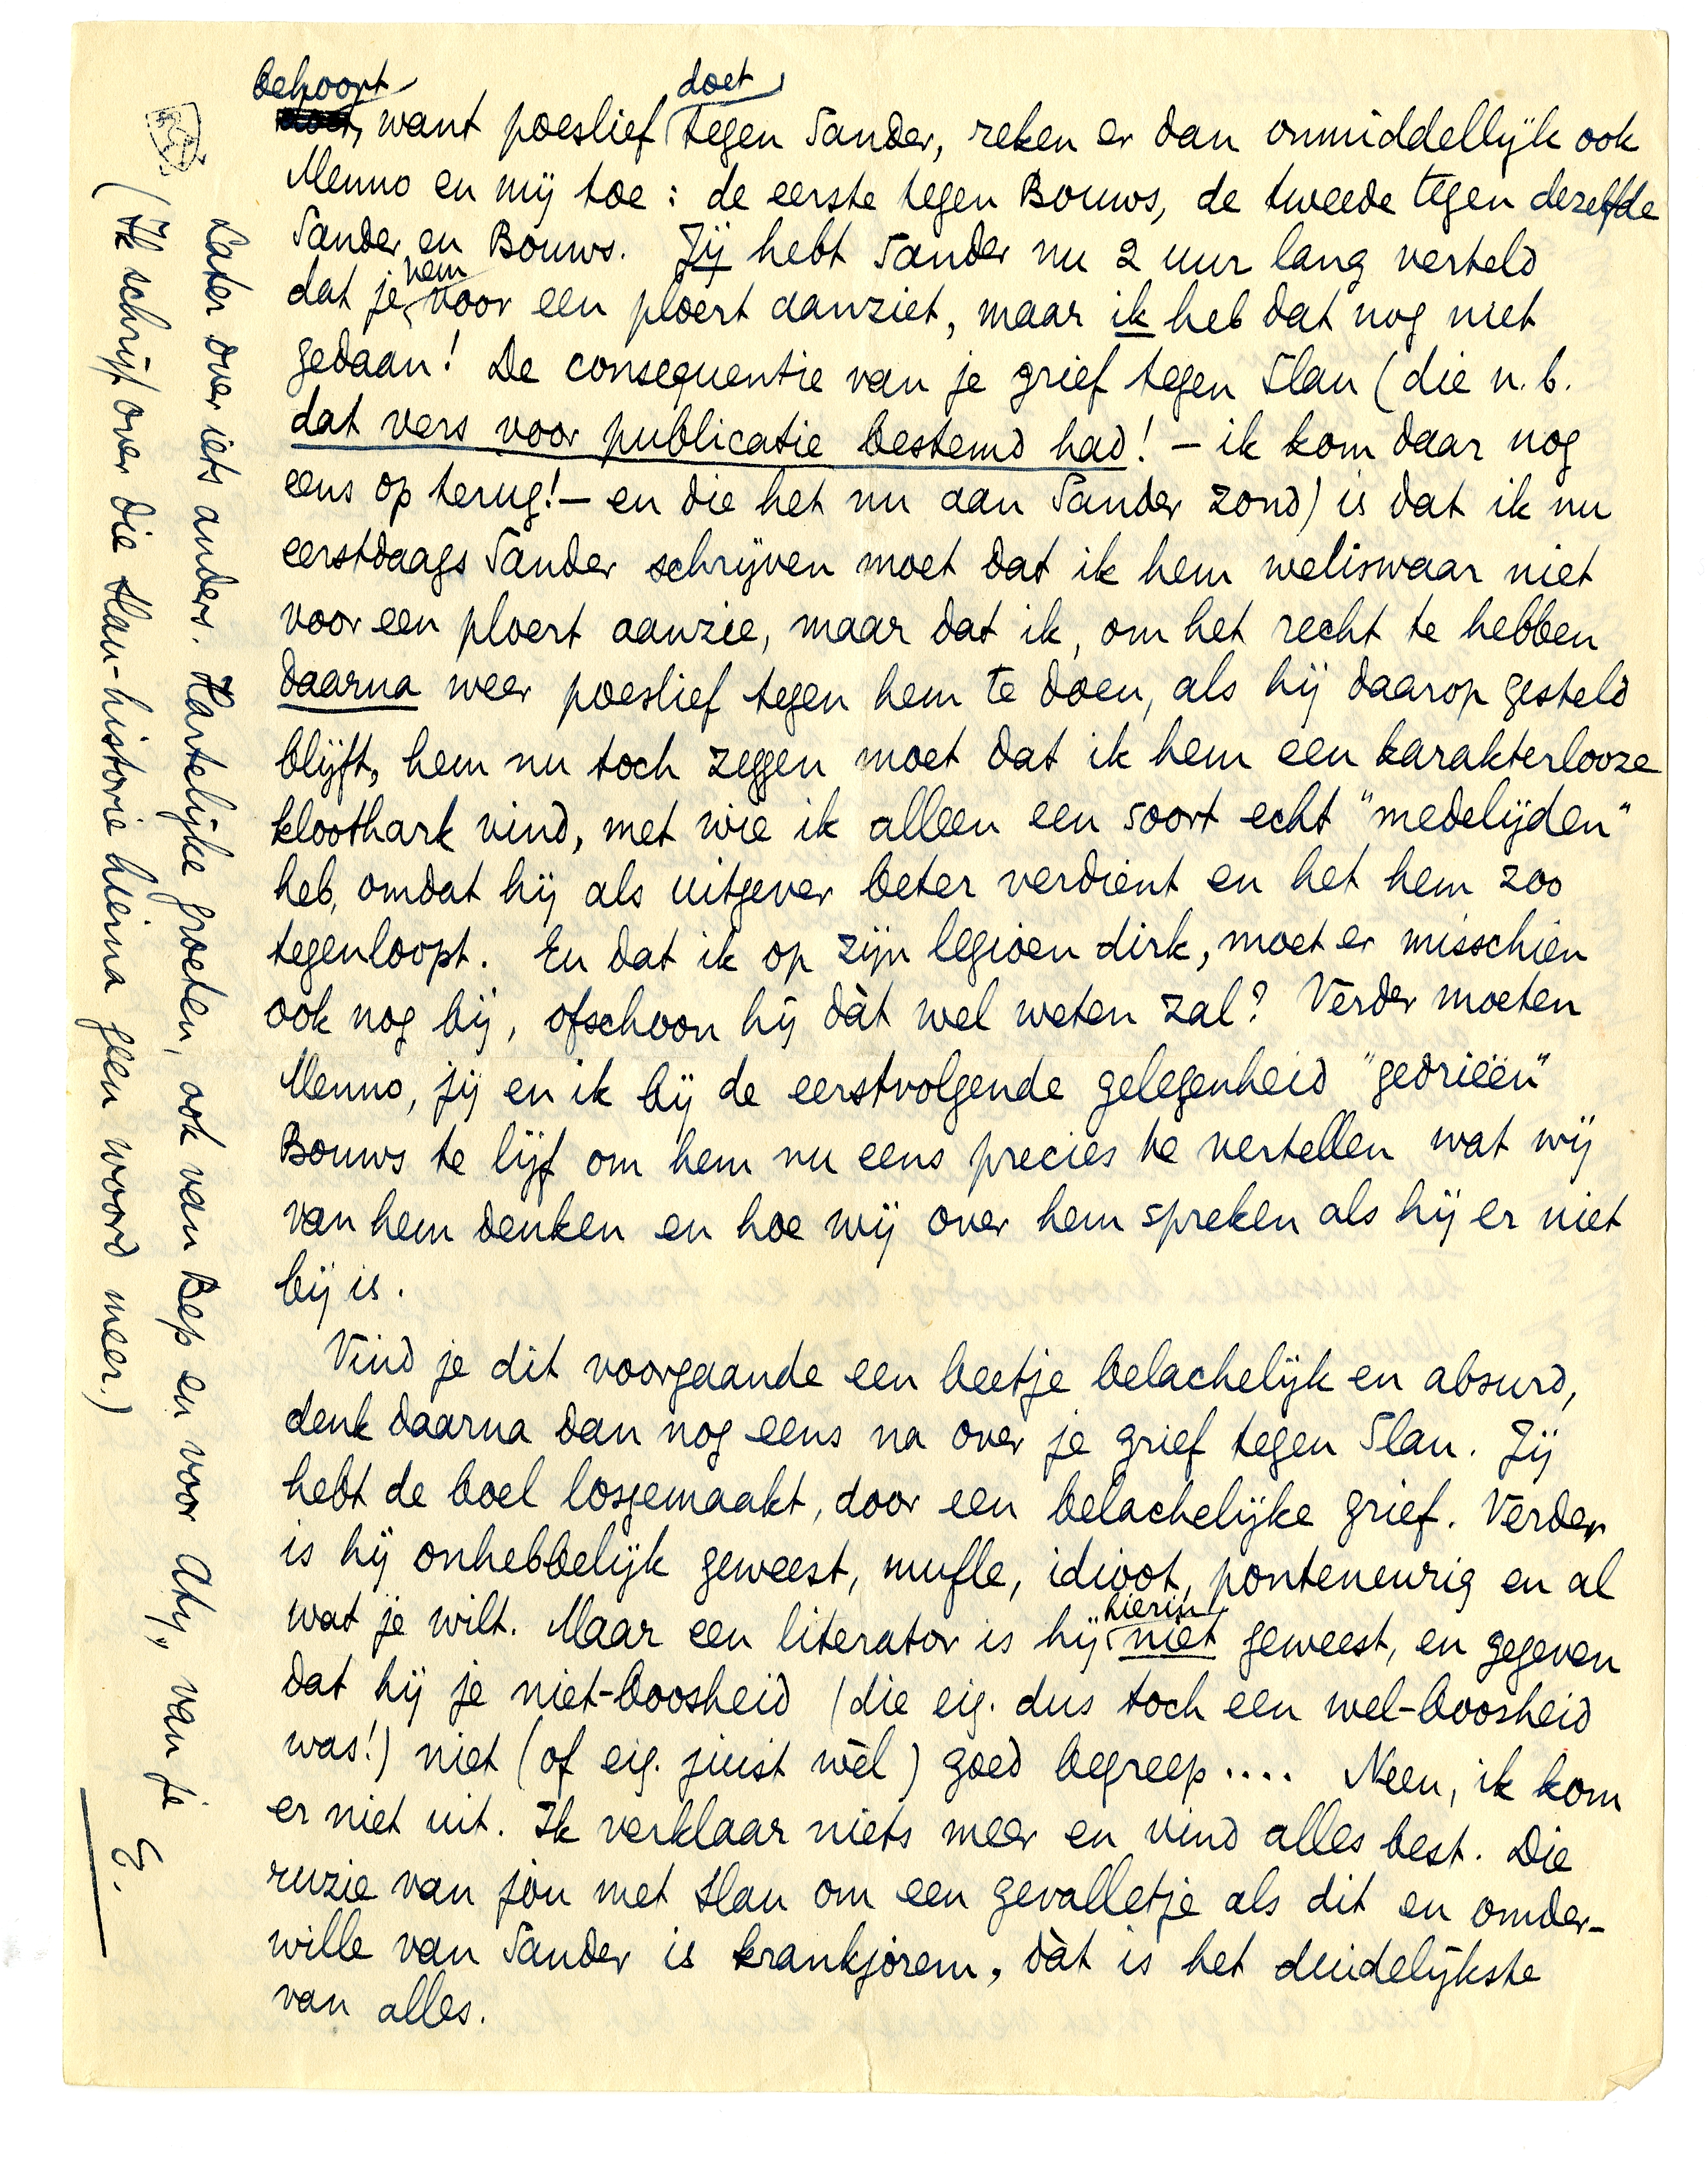 behoort doet
want poeslief tegen Sander, reken er dan onmiddellijk ook
Menno en mij toe : de eerste tegen Bouws, de tweede tegen dezelfde
Sander en Bouws. Jij hebt Sander nu 2 uur lang verteld
dat je hem voor een ploert aanziet, maar ik heb dat nog niet
gedaan! De consequentie van je grief tegen Slau (die n.b.
dat vers voor publicatie bestemd had! – ik kom daar nog
eens op terug! – en die het nu aan Sander zond) is dat ik nu
eerstdaags Sander schrijven moet dat ik hem weliswaar niet
voor een ploert aanzie, maar dat ik, om het recht te hebben
daarna weer poeslief tegen hem te doen, als hij daarop gesteld
blijft, hem nu toch zeggen moet dat ik hem een karakterlooze
kloothark vind, met wie ik alleen een soort echt "medelijden"
heb, omdat hij als uitgever beter verdient en het hem zoo
tegenloopt. En dat ik op zijn legioen dirk, moet er misschien
ook nog bij, ofschoon hij dàt wel weten zal? Verder moeten
Menno, jij en ik bij de eerstvolgende gelegenheid "gedrieën"
Bouws te lijf om hem nu eens precies te vertellen wat wij
van hem denken en hoe wij over hem spreken als hij er niet
bij is.
Vind je dit voorgaande een beetje belachelijk en absurd,
denk daarna dan nog eens na over je grief tegen Slau. Jij
hebt de boel losgemaakt, door een belachelijke grief. Verder
is hij onhebbelijk geweest, mufle, idioot, ponteneurig en al
wat je wilt. Maar een literator is hij hierin niet geweest, en gegeven
dat hij je niet-boosheid (die eig. dus toch een wel-boosheid
was!) niet (of eig. juist wèl) goed begreep.... Neen, ik kom
er niet uit. Ik verklaar niets meer en vind alles best. Die
ruzie van jou met Slau om een gevalletje als dit en omder-
wille van Sander is krankjorem, dàt is het duidelijkste
van alles.
Later over iets anders. Hartelijke groeten, ook van Bep en voor Aty, van je
E.
(Ik schrijf over die Slau-historie hierna geen woord meer.)